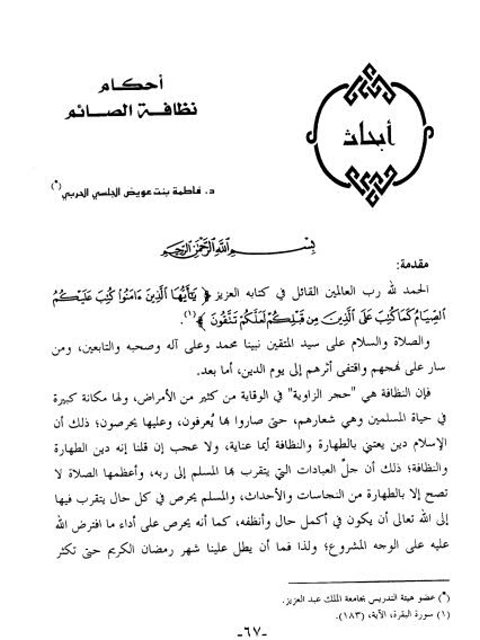 أحكام
نظافة الصائم
أبحاث
د. فاطمة بنت عويض الجلسي الحربي(*)
بسم الله الرحمن الرحيم
مقدمة:
الحمد لله رب العالمين القائل في كتابه العزيز ﴿ يَٰٓأَيُّهَا ٱلَّذِينَ ءَامَنُوا۟ كُتِبَ عَلَيْكُمُ
ٱلصِّيَامُ كَمَا كُتِبَ عَلَى ٱلَّذِينَ مِن قَبْلِكُمْ لَعَلَّكُمْ تَتَّقُونَ ﴾(١).
والصلاة والسلام على سيد المتقين نبينا محمد وعلى آله وصحبه والتابعين، ومن
سار على نهجهم واقتفى أثرهم إلى يوم الدين، أما بعد.
فإن النظافة هي "حجر الزاوية" في الوقاية من كثير من الأمراض، ولها مكانة كبيرة
في حياة المسلمين وهي شعارهم، حتى صاروا بها يُعرفون، وعليها يحرصون؛ ذلك أن
الإسلام دين يعتني بالطهارة والنظافة أيما عناية، ولا عجب إن قلنا إنه دين الطهارة
والنظافة؛ ذلك أن جلّ العبادات التي يتقرب بها المسلم إلى ربه، وأعظمها الصلاة لا
تصح إلا بالطهارة من النجاسات والأحداث، والمسلم يحرص في كل حال يتقرب فيها
إلى الله تعالى أن يكون في أكمل حال وأنظفه، كما أنه يحرص على أداء ما افترض الله
عليه على الوجه المشروع؛ ولذا فما أن يطل علينا شهر رمضان الكريم حتى تكثر
(*) عضو هيئة التدريس بجامعة الملك عبد العزيز.
(١) سورة البقرة، الآية، (١٨٣).
-٦٧-